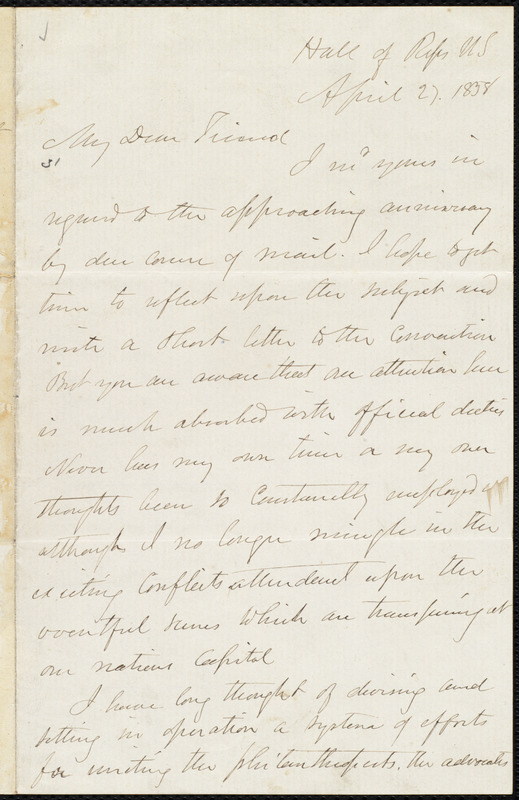 Hall of Reps US
April 27. 1858
My Dear Friend
I rec'd yours in
regard to the approaching anniversary
by due course of mail. I hope to get
time to reflect upon the subject and
write a short letter to the Convention
But you are aware that our attention here
is much absorbed with official duties
Never has my own time or my own
thoughts been so constantly employed
although I no longer mingle in the
exciting conflicts attendant upon the
eventful scenes which are transpiring at
our nations Capital
I have long thought of devising and
setting in operation a system of efforts
for uniting the philanthropists. the advocates